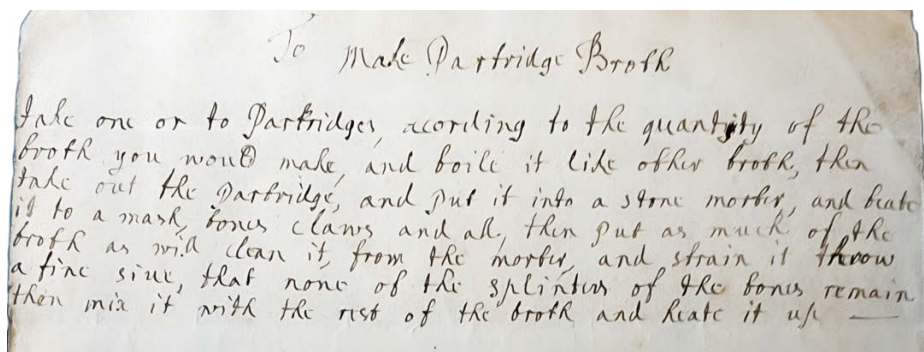 To Make Partridge Broth
take one or to Partridges, acording to the quantity of the
broth you would make, and boile it like other broth, then
take out the Partridge, and put it into a stone morter, and beate
it to a mash, bones claws and all, then put as much of the
broth as will clean it, from the morter, and strain it throw
a fine sive, that none of the splinters of the bones remain
then mix it with the rest of the broth and heate it up